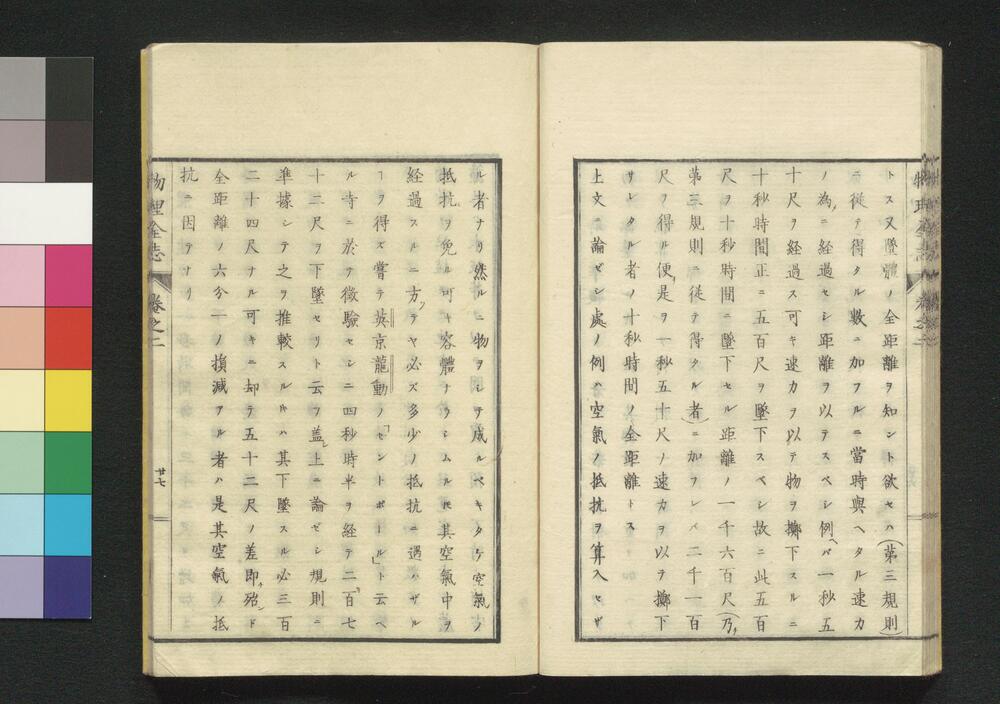 トス又墮體ノ全距離ヲ知ント欲セハ(第三規則)
ニ從テ得タル數ニ加フルニ當時與ヘタル速力
ノ為ニ經過セシ距離ヲ以テスベシ例ヘバ一秒五
十尺ヲ経過ス可キ速力ヲ以テ物ヲ擲下スルニ
十秒時間正ニ五百尺ヲ墜下スベシ故ニ此五百
尺ヲ十秒時間ニ墜下セル距離ノ一千六百尺(乃チ
第三規則ニ従テ得タル者)ニ加フレバ二千一百
尺ヲ得ル便チ是ヲ一秒五十尺ノ速力ヲ以テ擲下
サレタル者ノ十秒時間ノ全距離トス
上文ニ論ゼシ處ノ例ハ空氣ノ抵抗ヲ算入セザ
物理全志
卷之二
ル者ナリ然ルニ物ヲシテ成ルベキタケ空氣ノ
抵抗ヲ免ル可キ容體ナラシムルモ其空氣中ヲ
経過スルニ方テヤ必ズ多少ノ抵抗ニ遇ハザル
ヿヲ得ズ嘗テ英京龍動ノ「セントポール」ト云ヘ
ル寺ニ於テ徴驗セシニ四秒時半ヲ経テ二百七
十二尺ヲ下墜セリト云フ盖シ上ニ論ゼシ規則ニ
準據シテ之ヲ推較スルキハ其下墜スル必三百
二十四尺ナル可キニ却テ五十二尺ノ差即チ殆ンド
全距離ノ六分一ノ損減アル者ハ是其空氣ノ抵
抗ニ因テナリ
物理全志
卷之二
廿七